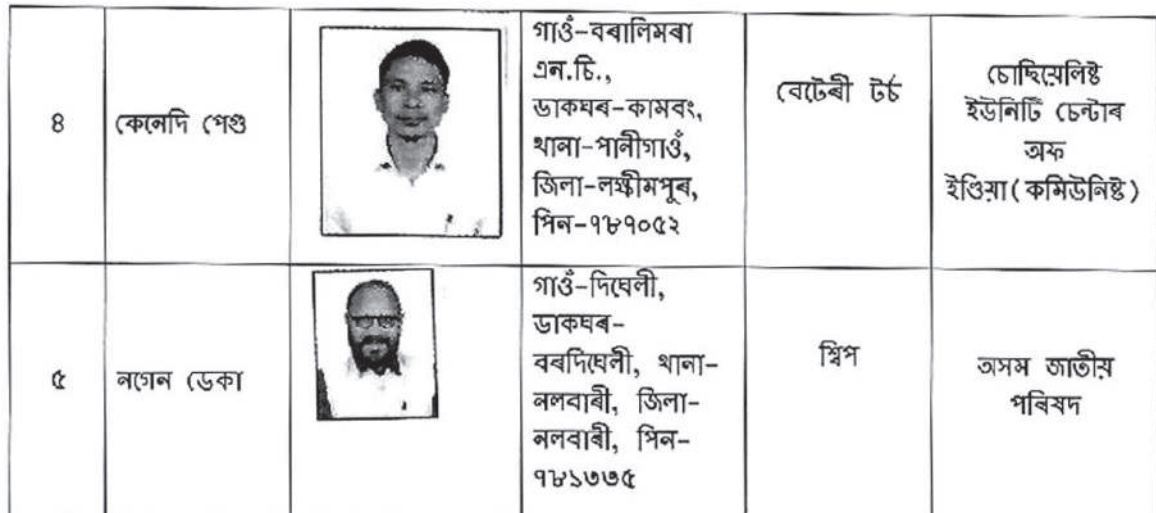 ৪
কেনেদি পেগু
গাওঁ-বৰালিমৰা
এন.চি.,
ডাকঘৰ-কামবং,
থানা-পানীগাওঁ,
জিলা-লক্ষীমপুৰ,
পিন-৭৮৭০৫২
বেটেৰী টৰ্চ
চোছিয়েলিষ্ট
ইউনিটি চেন্টাৰ
অফ
ইণ্ডিয়া(কমিউনিষ্ট)
৫
নগেন ডেকা
গাওঁ-দিঘেলী,
ডাকঘৰ-
বৰদিঘেলী, থানা-
নলবাৰী, জিলা-
নলবাৰী, পিন-
৭৮১৩৩৫
শ্বিপ
অসম জাতীয়
পৰিষদ